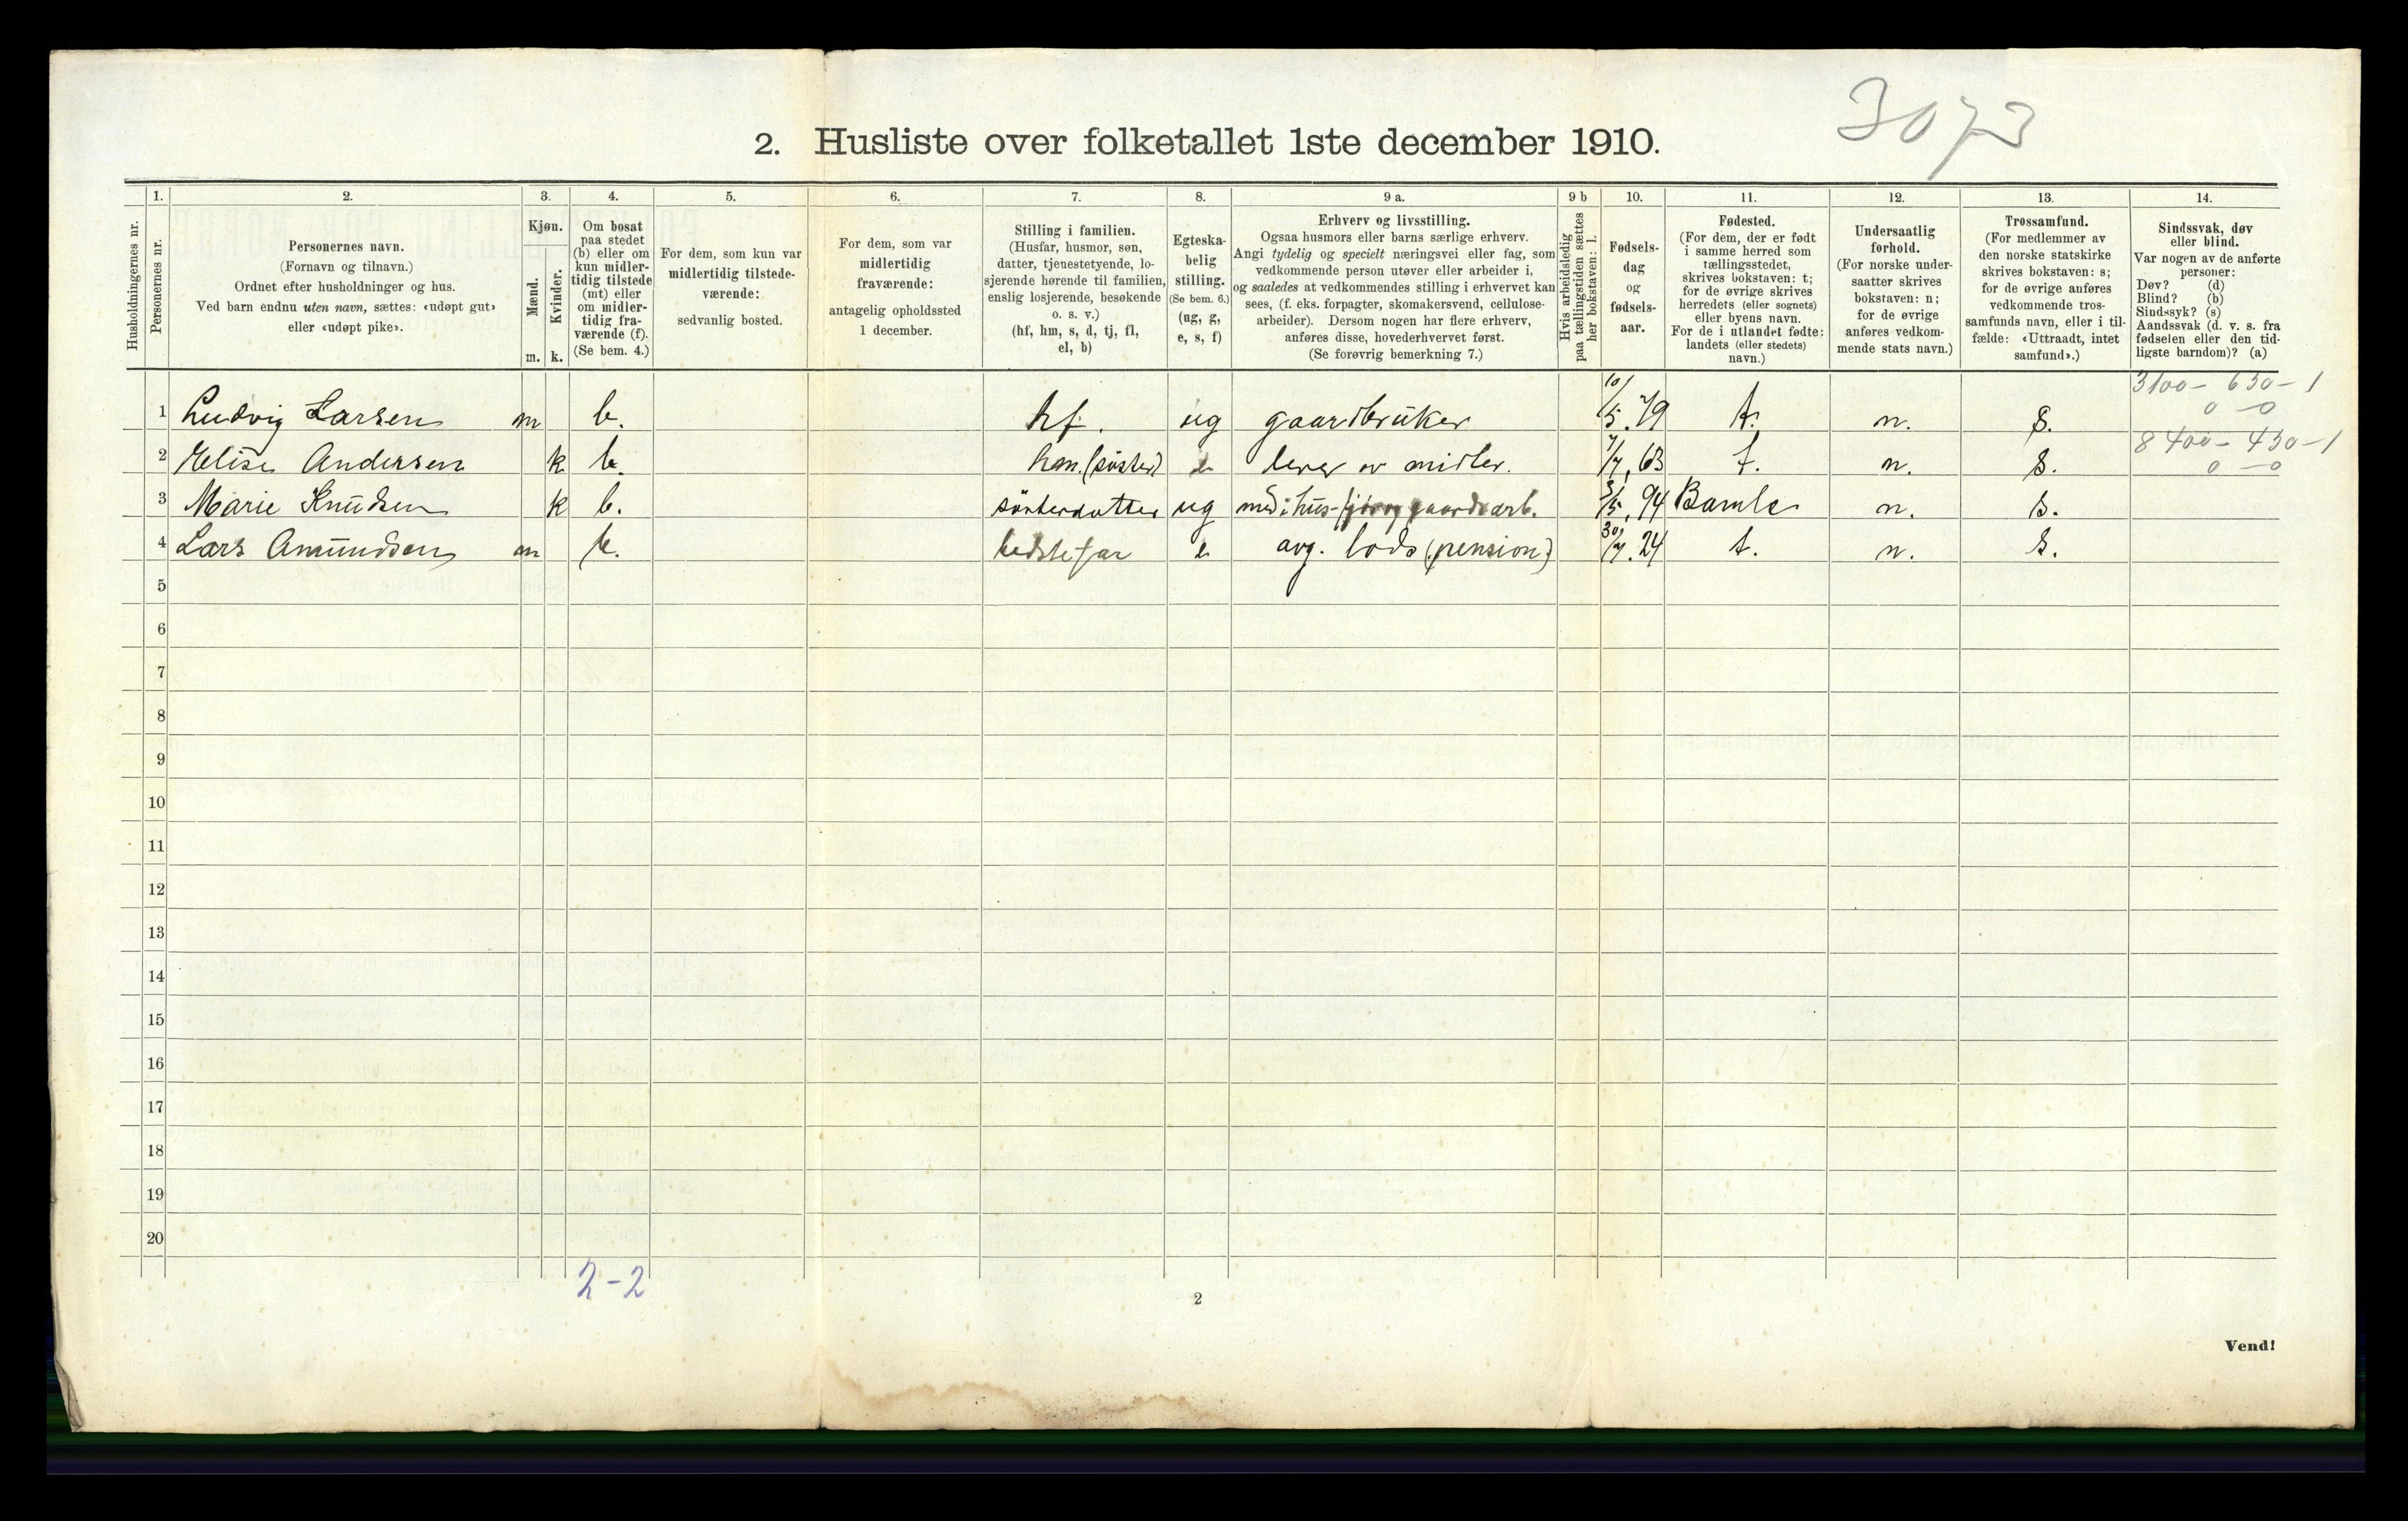 3073
2. Husliste over folketallet 1ste december 1910.
1. 2. 3. 4. 5. 6. 7. 8. 9 a. 9 b 10. 11. 12. 13. 14.
Husholdningernes nr.
Personernes nr.
Personernes navn.
(Fornavn og tilnavn.)
Ordnet efter husholdninger og hus.
Ved barn endnu uten navn, sættes: «udøpt gut»
eller «udøpt pike».
Kjøn.
Mænd.
Kvinder.
m. k.
Om bosat
paa stedet
(b) eller om
kun midler-
tidig tilstede
(mt) eller
om midler-
tidig fra-
værende (f).
(Se bem. 4.)
For dem, som kun var
midlertidig tilstede-
værende:
sedvanlig bosted.
For dem, som var
midlertidig
fraværende:
antagelig opholdssted
1 december.
Stilling i familien.
(Husfar, husmor, søn,
datter, tjenestetyende, lo-
sjerende hørende til familien,
enslig losjerende, besøkende
o. s. v.)
(hf, hm, s, d, tj, fl,
el, b)
Egteska-
belig
stilling.
(Se bem. 6.)
(ug, g,
e, s, f)
Erhverv og livsstilling.
Ogsaa husmors eller barns særlige erhverv.
Angi tydelig og specielt næringsvei eller fag, som
vedkommende person utøver eller arbeider i,
og saaledes at vedkommendes stilling i erhvervet kan
sees, (f. eks. forpagter, skomakersvend, cellulose-
arbeider). Dersom nogen har flere erhverv,
anføres disse, hovederhvervet først.
(Se forøvrig bemerkning 7.)
Hvis arbeidsledig
paa tællingstiden sættes
her bokstaven: l.
Fødsels-
dag
og
fødsels-
aar.
Fødested.
(For dem, der er født
i samme herred som
tællingsstedet,
skrives bokstaven: t;
for de øvrige skrives
herredets (eller sognets)
eller byens navn.
For de i utlandet fødte:
landets (eller stedets)
navn.)
Undersaatlig
forhold.
(For norske under-
saatter skrives
bokstaven: n;
for de øvrige
anføres vedkom-
mende stats navn.)
Trossamfund.
(For medlemmer av
den norske statskirke
skrives bokstaven: s;
for de øvrige anføres
vedkommende tros-
samfunds navn, eller i til-
fælde: «Uttraadt, intet
samfund».)
Sindssvak, døv
eller blind.
Var nogen av de anførte
personer:
Døv? (d)
Blind? (b)
Sindssyk? (s)
Aandssvak (d. v. s. fra
fødselen eller den tid-
ligste barndom)? (a)
3100 - 630 - 1
1 Ludvig Larsen m b. hf. ug gaardbruker 10/5.79 t. n. s. 0 - 0
8400 - 430 - 1
2 Elise Andersen k b. hm.(søster) e lever av midler. 7/7.63 t. n. s. 0 - 0
3 Marie Knudsen k b. søsterdatter ug med i hus- gaardsarb. 3/5.94 Bamle n. s.
4 Lars Amundsen m b. bedstefar e avg. lods (pension) 30/7.24 t. n. s.
5
6
7
8
9
10
11
12
13
14
15
16
17
18
19
20
2-2
2
Vend!